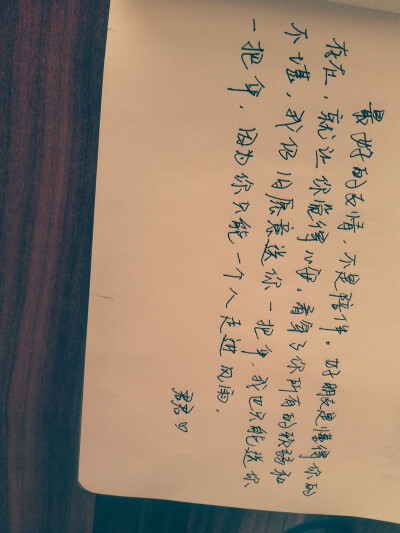 最好的友情，不是陪伴。好朋友是懂得你的
存在，就让你觉得心安。看穿了你所有的软弱和
不堪，我仍旧愿意送你一把伞，我也只能送你
一把伞，因为你只能一个人走进风雨。